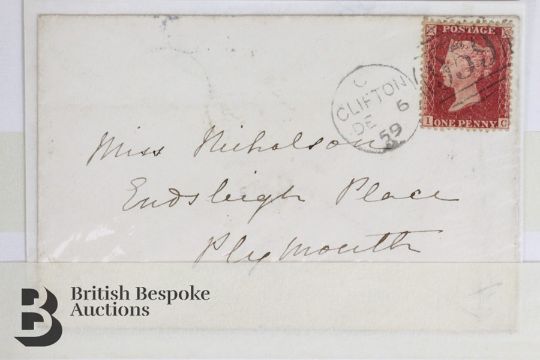 POSTAGE
I G
ONE PENNY
C
CLIFTON
DE 6
59
Miss Nicholson
Endsleigh Place
Plymouth
B
British Bespoke
Auctions